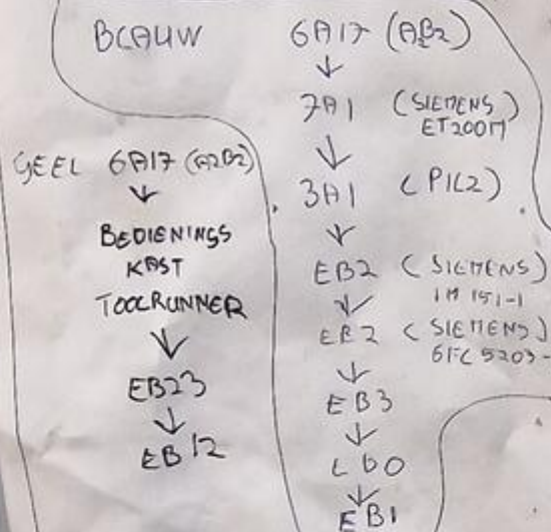 BLAUW
6A17 (A2B2)
↓
7A1 (SIEMENS)
ET200M
↓
3A1 (PILZ)
↓
EB2 (SIEMENS)
IM 151-1
↓
EB2 (SIEMENS)
6FC 5203-
↓
EB3
↓
↓
EB1
GEEL 6A17 (A2B2)
↓
BEDIENINGS
KAST
TOOLRUNNER
↓
EB23
↓
EB12